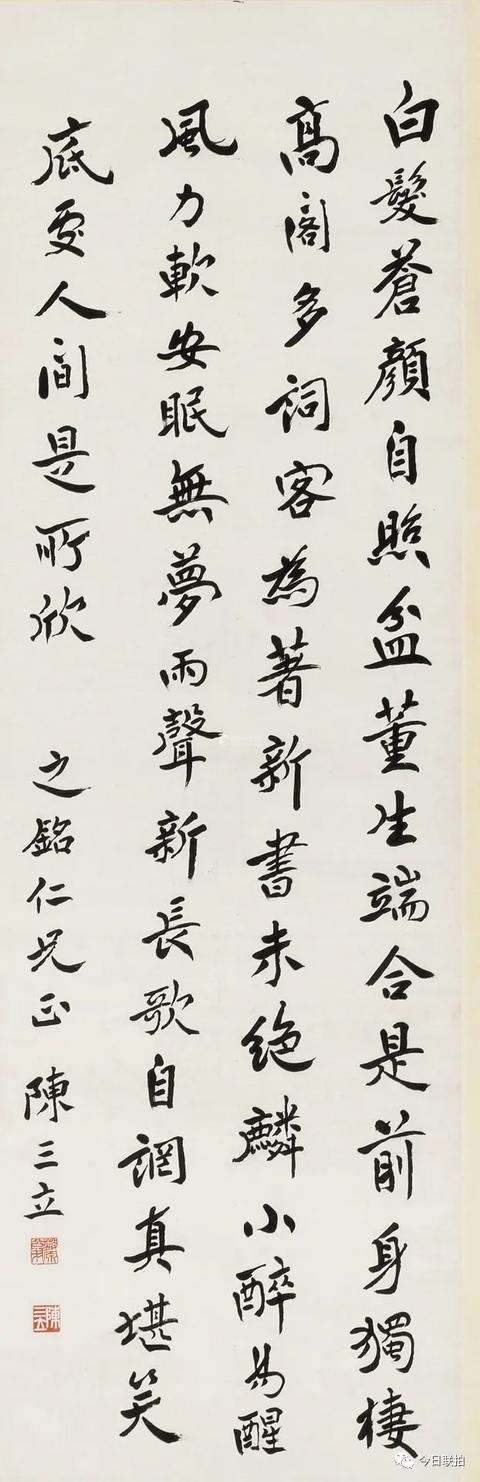 白髮蒼顏自照盆董生端合是前身獨棲
高閣多詞客為著新書未絕麟小醉易醒
風力軟安眠無夢雨聲新長歌自誷真堪笑
底處人間是所欣
之銘仁兄正 陳三立
今日联拍